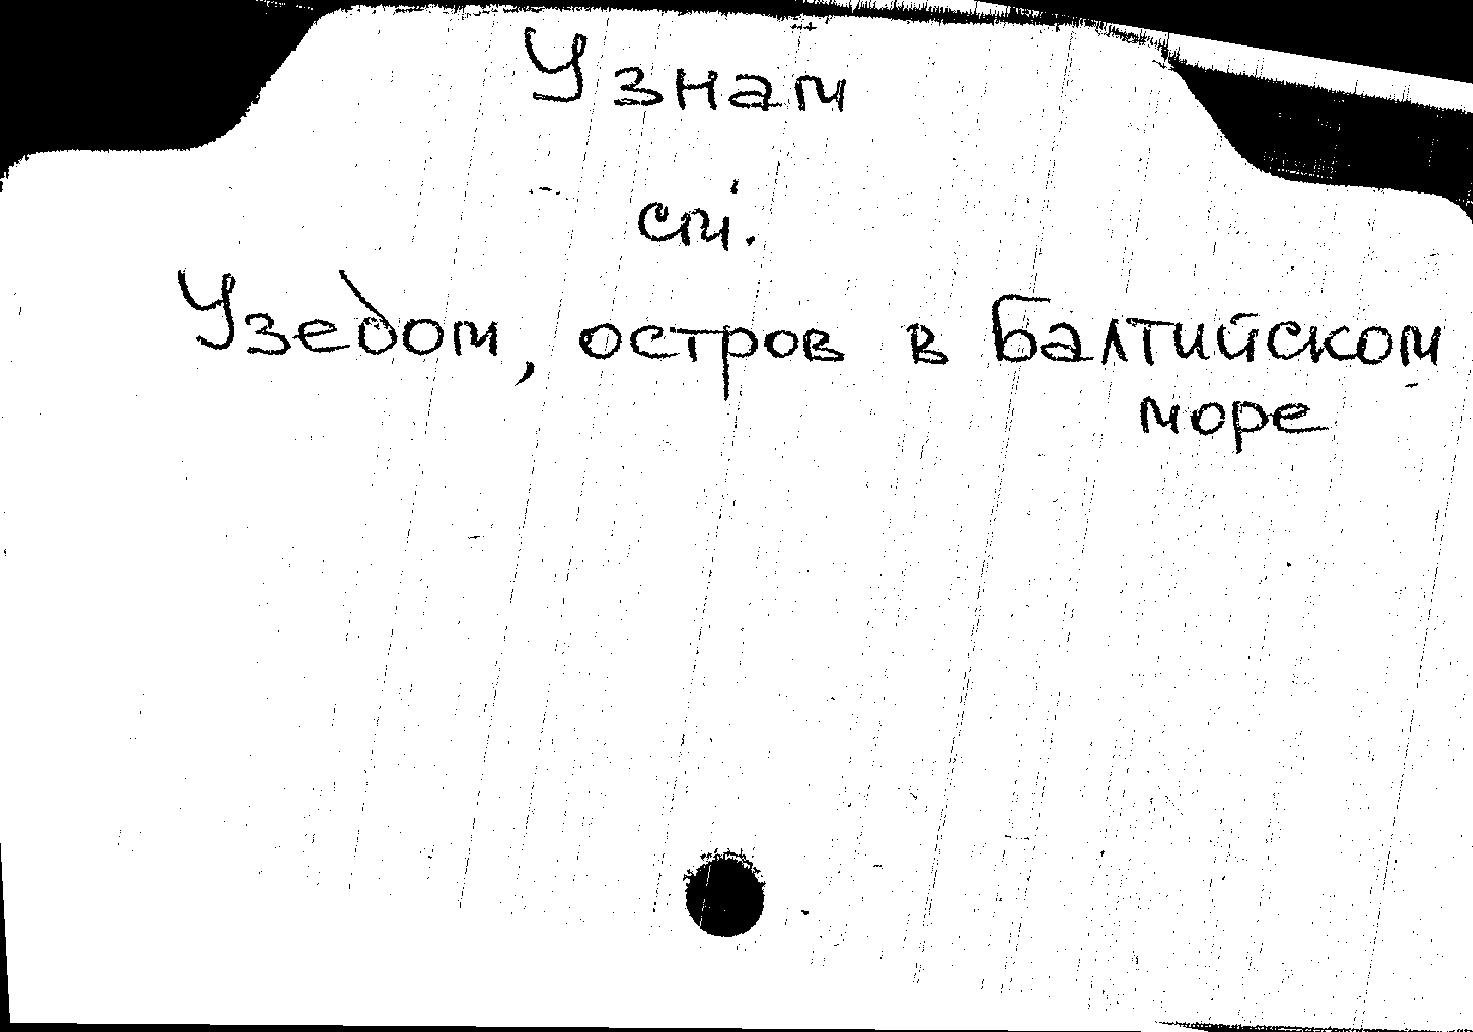 Узнам
см.
Узедом, остров в Балтийском
море